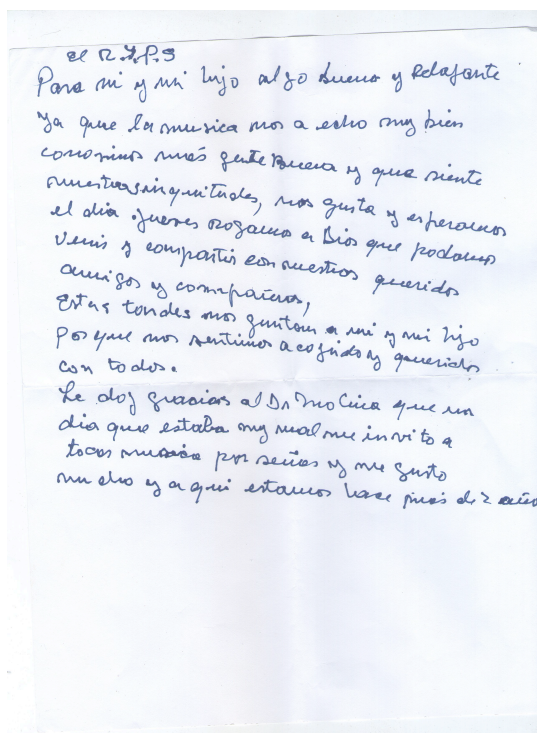 el R.I.P.S
Para mi y mi hijo algo buena y Relajante
ya que la musica nos a echo muy bien
conosimos más gente Buena y que siente
nuestras inquitudes, nos gusta y esperamos
el dia jueves rogamos a Dios que podamos
venir y compartir con nuestros queridos
amigos y compañeros,
Estas tardes nos gustan a mi y mi hijo
porque nos sentimos acogido y queridos
con todos.
Le doy gracias al Dr Molina que un
dia que estaba muy mal me invito a
tocar musica por señas y me gusto
mucho y aqui estamos hace más de 2 años